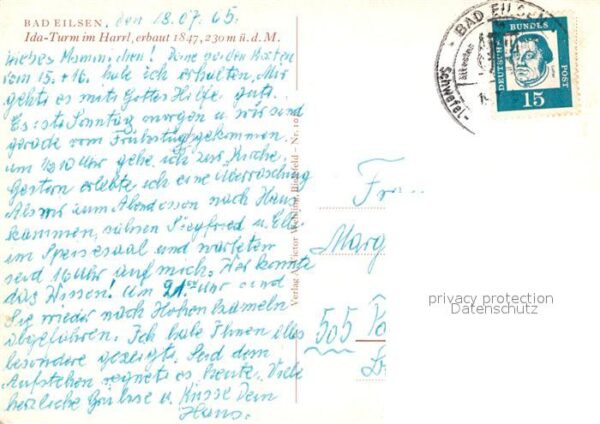 BAD EILSEN, den 18.07.65.
Ida-Turm im Harrl, erbaut 1847, 230 m ü. d. M.
Liebes Mammichen! Deine beiden Karten
vom 15. + 16. habe ich erhalten. Mir
gehts es mit Gottes Hilfe gut.
Es ist Sonntag morgen u. wir sind
gerade vom Frühstück gekommen.
um 1/2 10 Uhr gehe ich zur Kirche.
Gestern erlebte ich eine Überraschung
Als wir zum Abendessen nach Haus
kammen, sahsen Siegfried u. Elli
im Speisesaal und warteten
seid 16 Uhr auf mich. Wer konnte
das Wissen! Um 21 Uhr sind
Sie wieder nach Hohenhameln
abgefahren. Ich habe Ihnen alles
besondere gezeigt. Seid dem
Aufstehen regnets es heute. Viele
herzliche Grühse u. Küsse Dein
Hans.
Verlag Nr. 10
BAD EILSEN
ältestes
Schwefel-
DEUTSCHE BUNDESPOST
15
Frau
Marg
505
privacy protection
Datenschutz